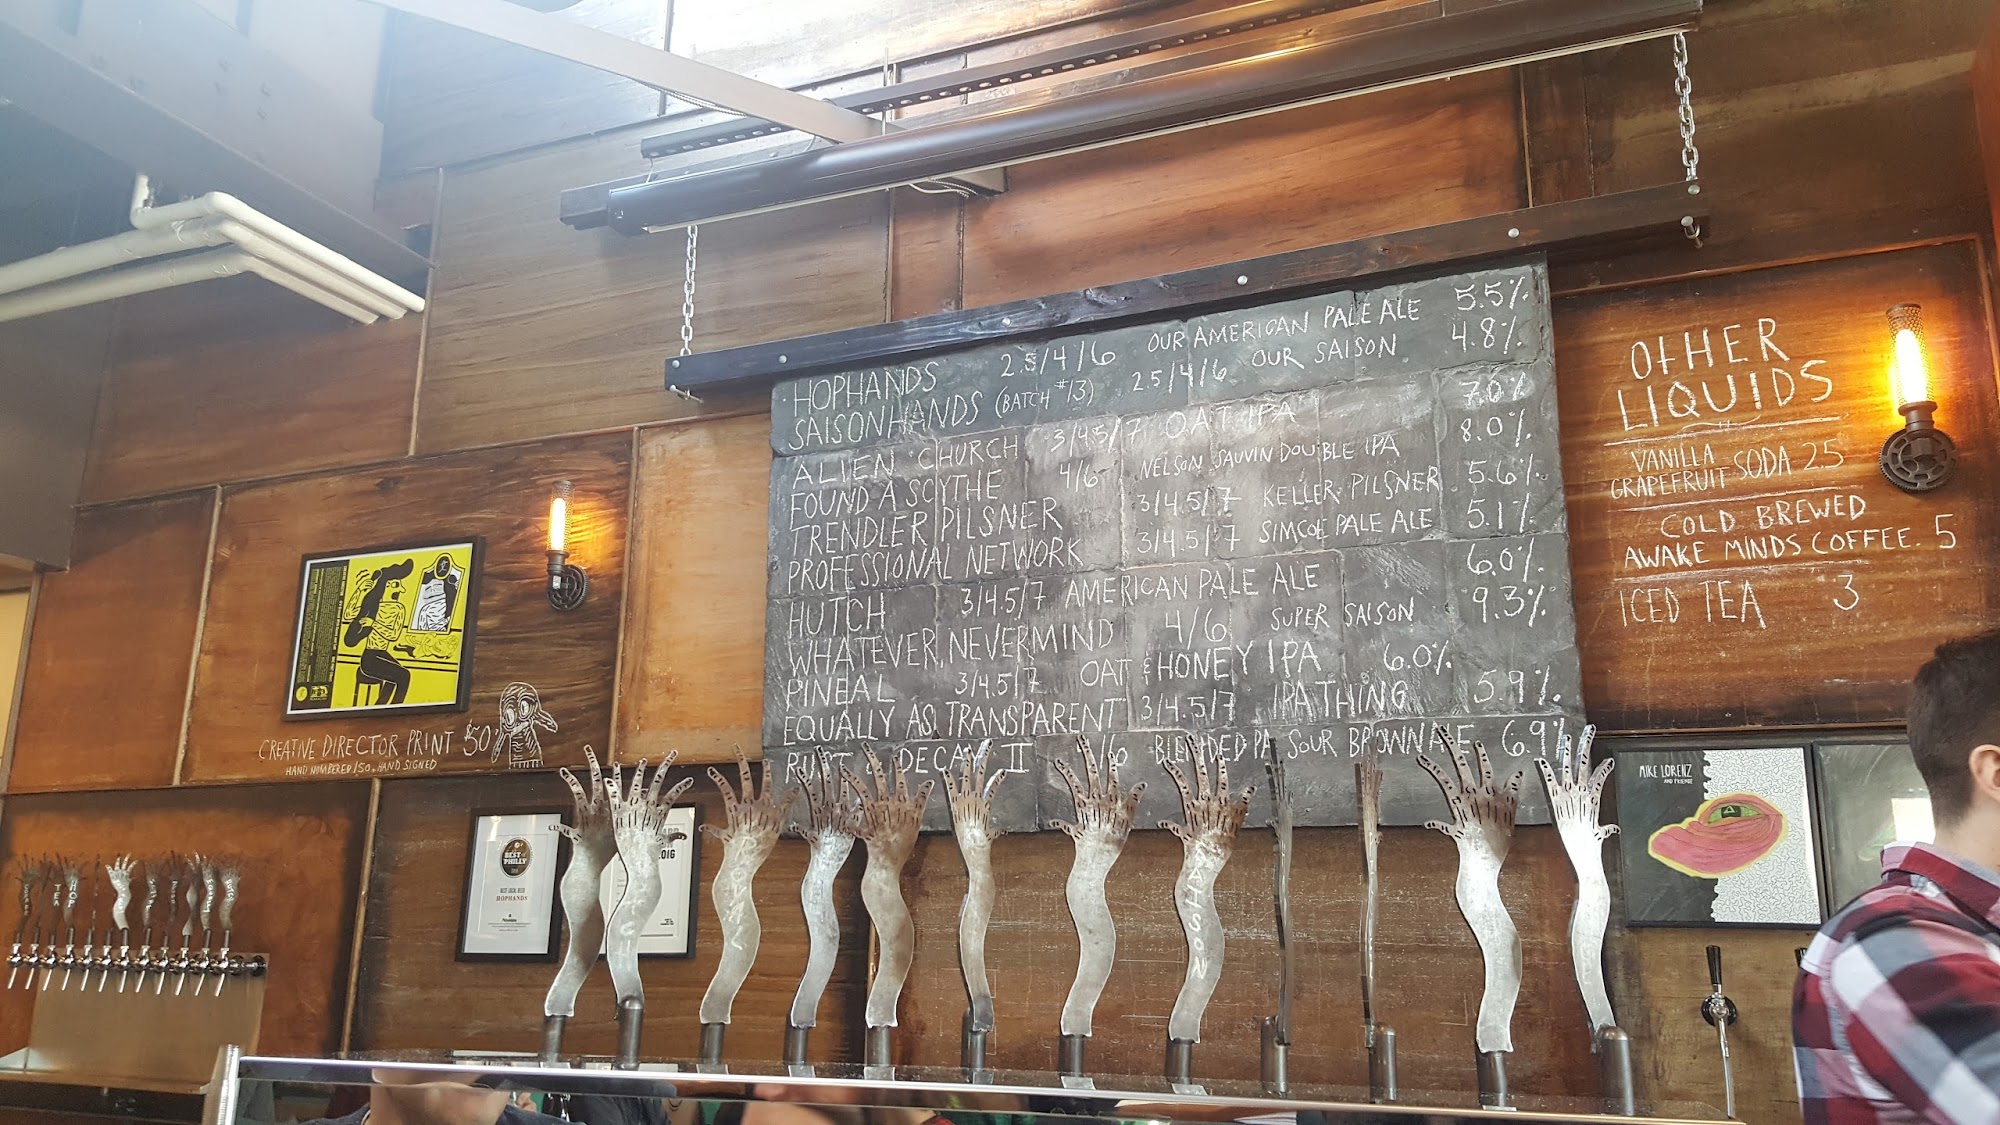 HOPHANDS 2.5/4/6 OUR AMERICAN PALE ALE 5.5%
SAISONHANDS (BATCH #13) 2.5/4/6 OUR SAISON 4.8%
ALIEN CHURCH 3/4.5/7 OAT IPA 7.0%
FOUND A SCYTHE 4/6 NELSON SAUVIN DOUBLE IPA 8.0%
TRENDLER PILSNER 3/4.5/7 KELLER PILSNER 5.6%
PROFESSIONAL NETWORK 3/4.5/7 SIMCOE PALE ALE 5.1%
HUTCH 3/4.5/7 AMERICAN PALE ALE 6.0%
WHATEVER, NEVERMIND 4/6 SUPER SAISON 9.3%
PINEAL 3/4.5/7 OAT & HONEY IPA 6.0%
EQUALLY AS TRANSPARENT 3/4.5/7 IPA THING 5.9%
RUST & DECAY II /6 BLENDED PA SOUR BROWN ALE 6.9%
OTHER
LIQUIDS
VANILLA
GRAPEFRUIT SODA 2.5
COLD BREWED
AWAKE MINDS COFFEE. 5
ICED TEA 3
CREATIVE DIRECTOR PRINT $50
HAND NUMBERED /50, HAND SIGNED
BEST of
PHILLY
BEST LOCAL BEER
HOPHANDS
MIKE LORENZ
AND FRIENDS
TEA
HOP
SAISON